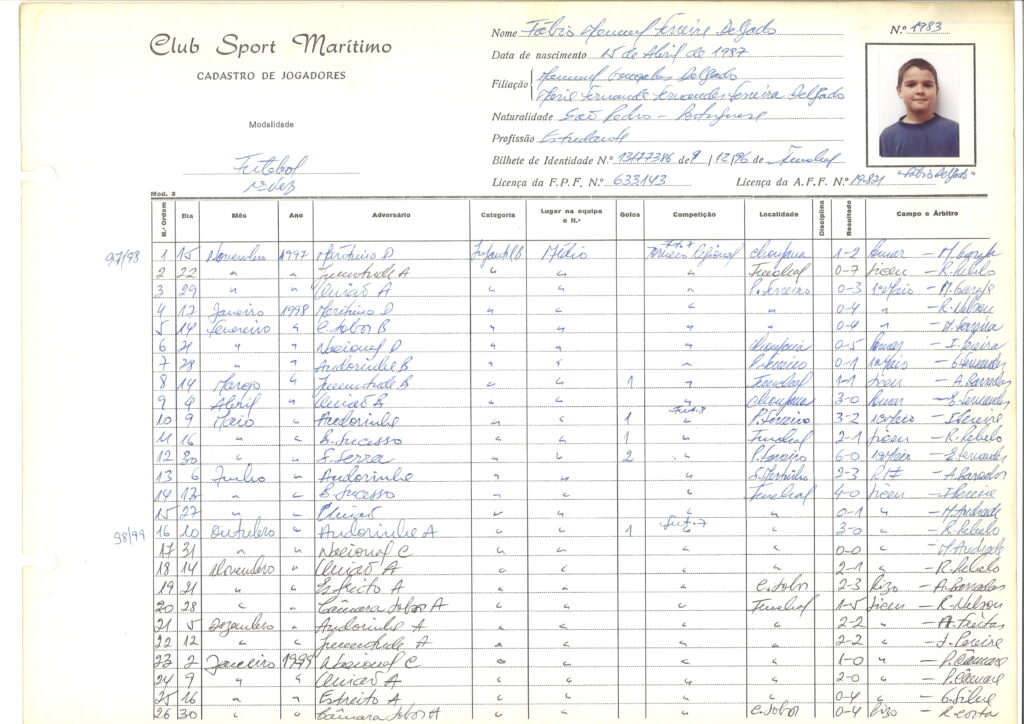 Club Sport Marítimo
CADASTRO DE JOGADORES
Modalidade
Futebol
1ª Vez
Nome Fábio Manuel Ferreira Delgado
Data de nascimento 15 de Abril de 1987
Filiação Manuel Gonçalves Delgado
Maria Fernanda Fernandes Ferreira Delgado
Naturalidade São Pedro - Portuguesa
Profissão Estudante
Bilhete de Identidade N.º 13177386 de 9 / 12/96 de Funchal
Licença da F.P.F. N.º 633143 Licença da A.F.F. N.º 19.821
N.º 1983
"Fábio Delgado"
Mod. 3
N.º Ordem Dia Mês Ano Adversário Categoria Lugar na equipa e N.º Golos Competição Localidade Disciplina Resultado Campo e Árbitro
97/98 1 15 Novembro 1997 Marítimo D Infantil B Médio Fut.7 Torneio Regional Choupana 1-2 - M. Garcês
2 22 " " Juventude A " " " Funchal 0-7 - R. Rebelo
3 29 " " União A " " " P. Ferreiro 0-3 1º Maio - M. Garcês
4 17 Janeiro 1998 Marítimo D " " " " 0-4 " - R. Nelson
5 14 Fevereiro " C. Lobos B " " " " 0-4 " - M. Ferreira
6 21 " " Nacional D " " " Choupana 0-5 - I. Pereira
7 28 " " Andorinha B " " " P. Ferreiro 0-1 1º Maio - E. Fernandes
8 14 Março " Juventude B " " 1 " Funchal 1-1 - A. Barradas
9 4 Abril " União B " " " Choupana 3-0 - E. Fernandes
10 9 Maio " Andorinha " " 1 Fut.8 " P. Ferreiro 3-2 1º Maio - I. Pereira
11 16 " " B. Sucesso " " 1 " Funchal 2-1 - R. Rebelo
12 30 " " S. Serra " " 2 " P. Ferreiro 6-0 1º Maio - E. Fernandes
13 6 Junho " Andorinha " " " S. Martinho 2-3 - A. Barradas
14 13 " " B. Sucesso " " " Funchal 4-0 - I. Pereira
15 27 " " União " " " " 0-1 " - M. Andrade
98/99 16 10 Outubro " Andorinha A " " 1 Fut.7 " " 3-0 " - R. Rebelo
17 31 " " Nacional C " " " " 0-0 " - M. Andrade
18 14 Novembro " União A " " " " 2-1 " - R. Rebelo
19 21 " " Estreito A " " " C. Lobos 2-3 - A. Barradas
20 28 " " Câmara Lobos A " " " Funchal 1-5 - R. Nelson
21 5 Dezembro " Andorinha A " " " " 2-2 " - Freitas
22 12 " " Juventude A " " " " 2-2 " - J. Pereira
23 2 Janeiro 1999 Nacional C " " " " 1-0 " - P. Câmara
24 9 " " União A " " " " 2-0 " - P. Câmara
25 16 " " Estreito A " " " " 0-4 " - G. Silva
26 30 " " Câmara Lobos A " " " C. Lobos 0-4 - R. Costa